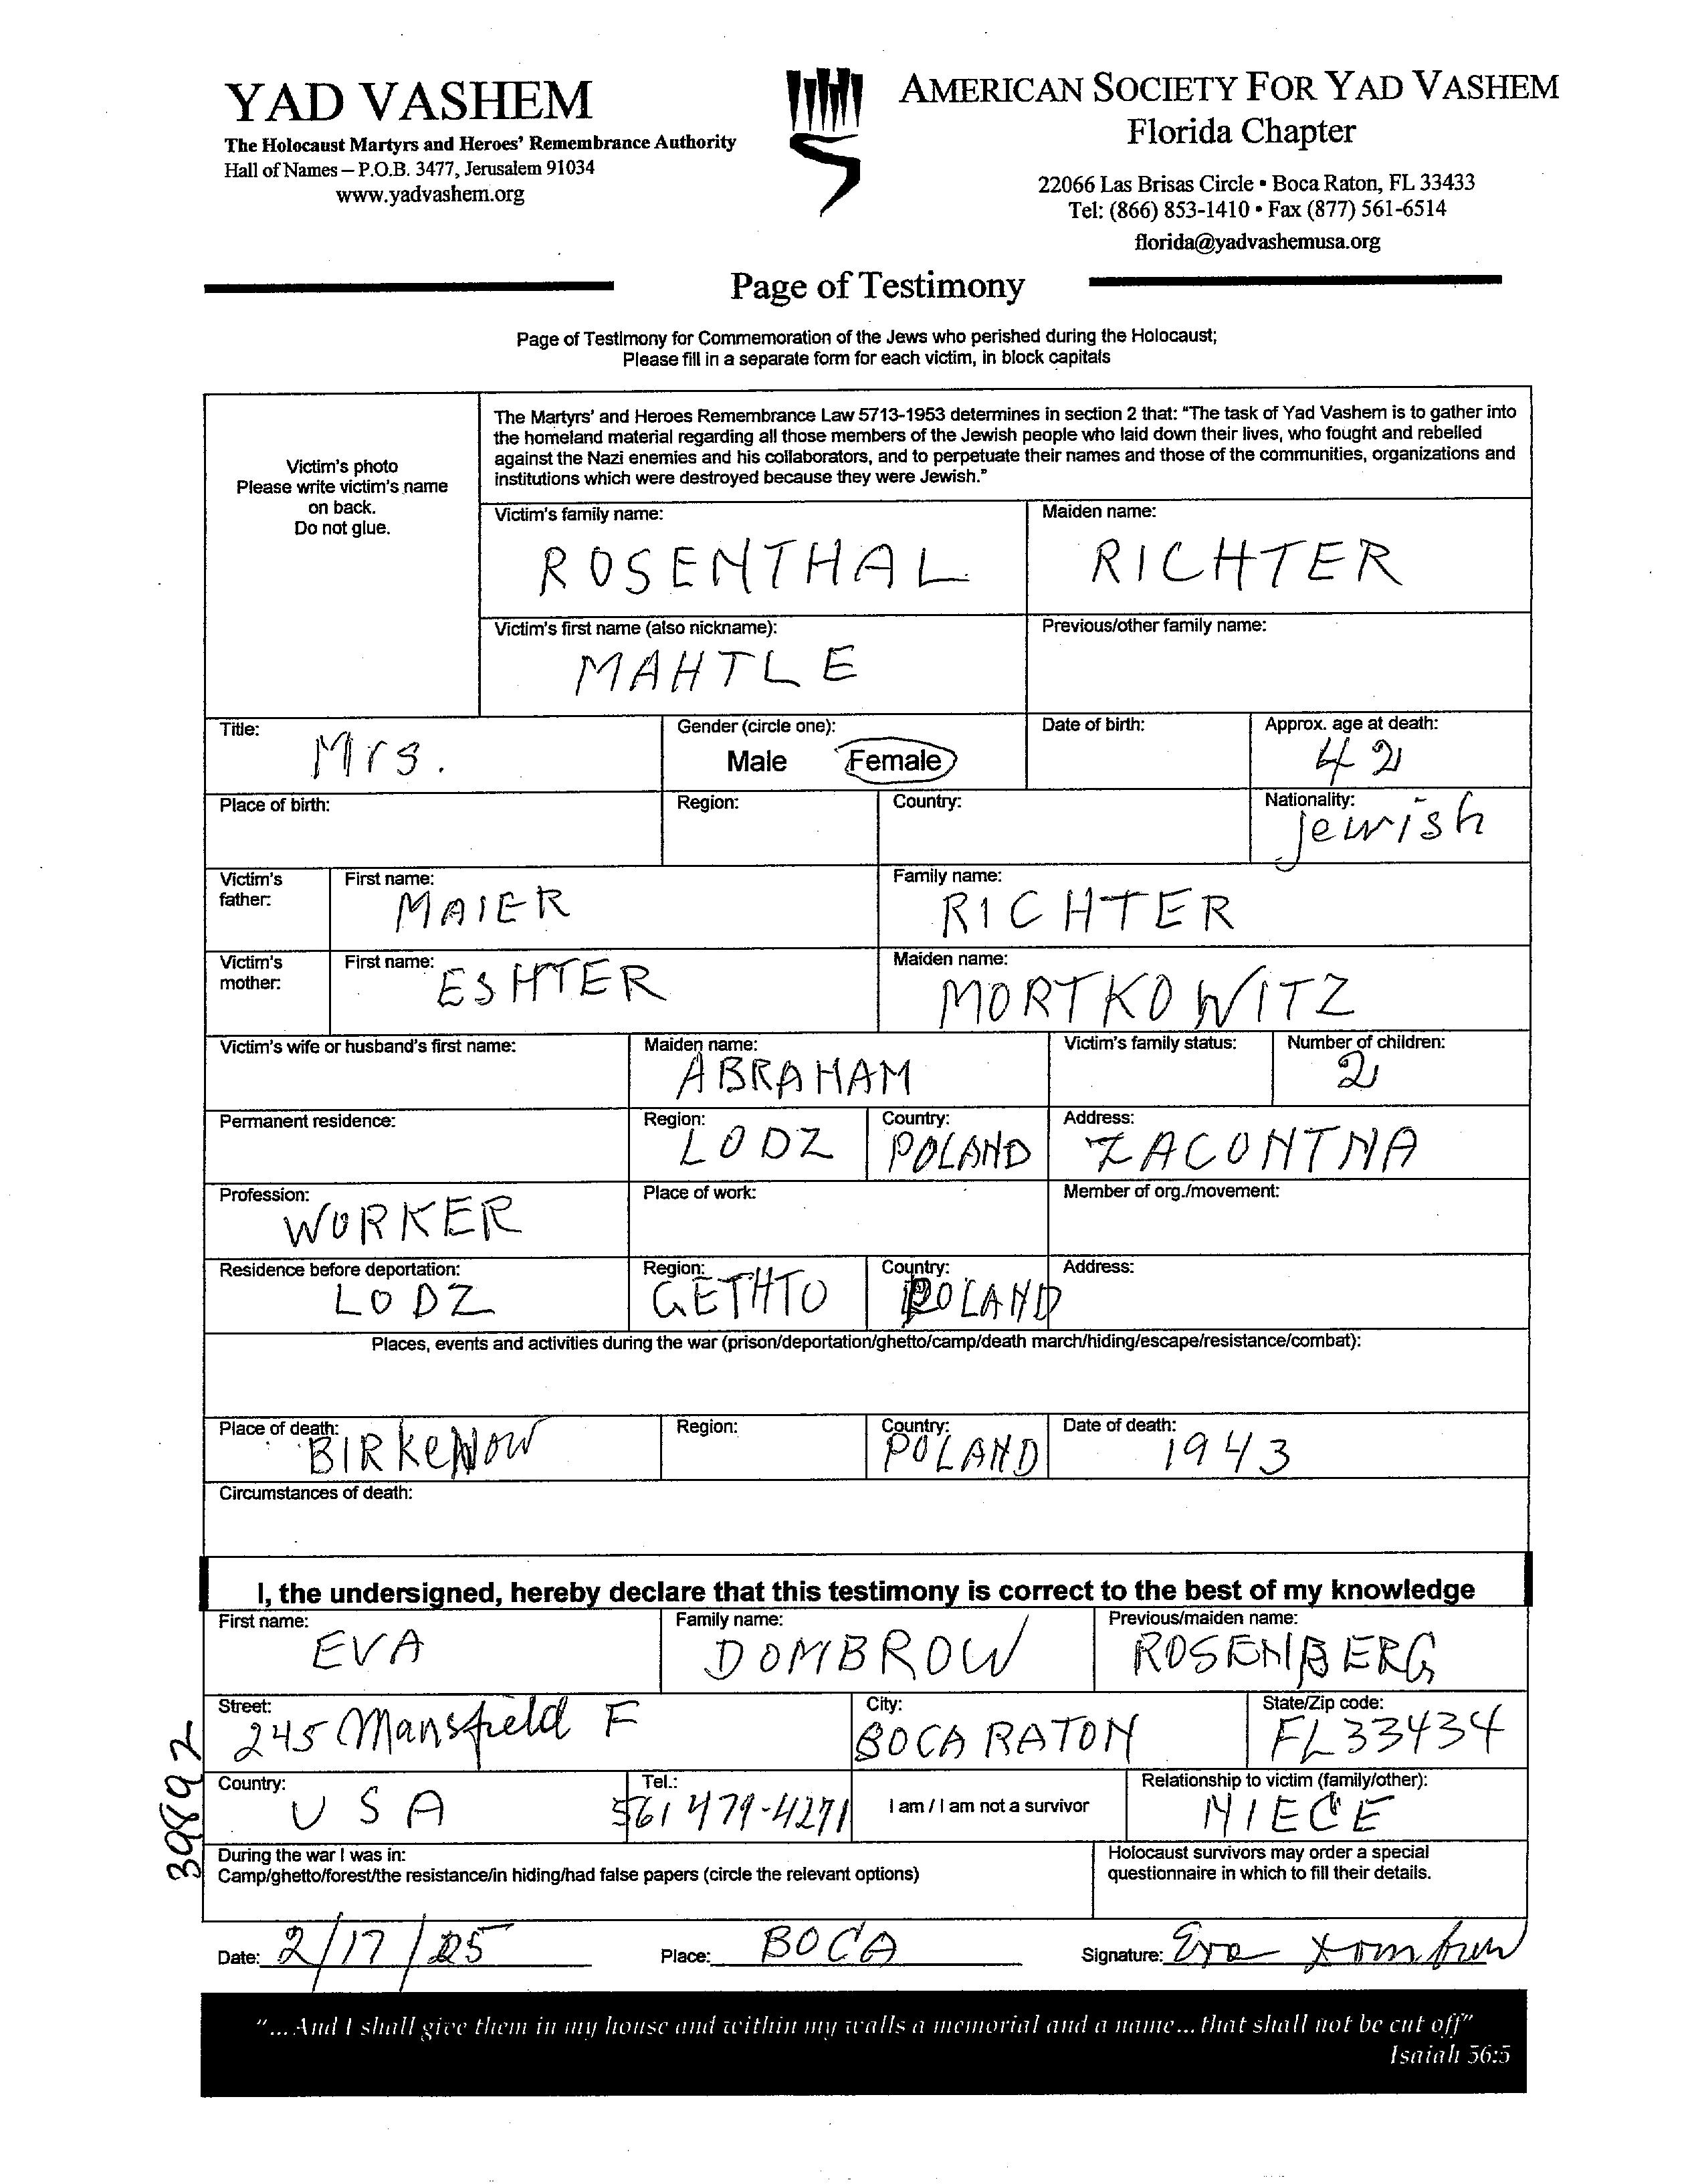 YAD VASHEM
The Holocaust Martyrs and Heroes' Remembrance Authority
Hall of Names – P.O.B. 3477, Jerusalem 91034
www.yadvashem.org
AMERICAN SOCIETY FOR YAD VASHEM
Florida Chapter
22066 Las Brisas Circle • Boca Raton, FL 33433
Tel: (866) 853-1410 • Fax (877) 561-6514
florida@yadvashemusa.org
Page of Testimony
Page of Testimony for Commemoration of the Jews who perished during the Holocaust;
Please fill in a separate form for each victim, in block capitals
Victim's photo
Please write victim's name
on back.
Do not glue.
The Martyrs' and Heroes Remembrance Law 5713-1953 determines in section 2 that: "The task of Yad Vashem is to gather into
the homeland material regarding all those members of the Jewish people who laid down their lives, who fought and rebelled
against the Nazi enemies and his collaborators, and to perpetuate their names and those of the communities, organizations and
institutions which were destroyed because they were Jewish."
Victim's family name: Maiden name:
ROSENTHAL RICHTER
Victim's first name (also nickname): Previous/other family name:
MAHTLE
Title: Gender (circle one): Date of birth: Approx. age at death:
Mrs. Male Female 42
Place of birth: Region: Country: Nationality:
Jewish
Victim's father: First name: Family name:
MAIER RICHTER
Victim's mother: First name: Maiden name:
ESHTER MORTKOWITZ
Victim's wife or husband's first name: Maiden name: Victim's family status: Number of children:
ABRAHAM 2
Permanent residence: Region: Country: Address:
LODZ POLAND ZACONTNA
Profession: Place of work: Member of org./movement:
WORKER
Residence before deportation: Region: Country: Address:
LODZ GETHTO POLAND
Places, events and activities during the war (prison/deportation/ghetto/camp/death march/hiding/escape/resistance/combat):
Place of death: Region: Country: Date of death:
BIRKeNOW POLAND 1943
Circumstances of death:
I, the undersigned, hereby declare that this testimony is correct to the best of my knowledge
First name: Family name: Previous/maiden name:
EVA DOMBROW ROSENBERG
Street: City: State/Zip code:
245 Mansfield F BOCA RATON FL 33434
Country: Tel.: Relationship to victim (family/other):
USA 561 479-4271 I am / I am not a survivor NIECE
39892
During the war I was in:
Camp/ghetto/forest/the resistance/in hiding/had false papers (circle the relevant options)
Holocaust survivors may order a special
questionnaire in which to fill their details.
Date: 2/17/25 Place: BOCA Signature: Eva Dombrow
"...And I shall give them in my house and within my walls a memorial and a name... that shall not be cut off"
Isaiah 56:5